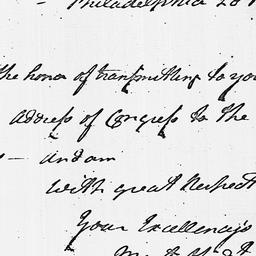 Philadelphia 20
the honor of transmitting to you
address of Congress to the
— and am
with great Respect
Your Excellency's